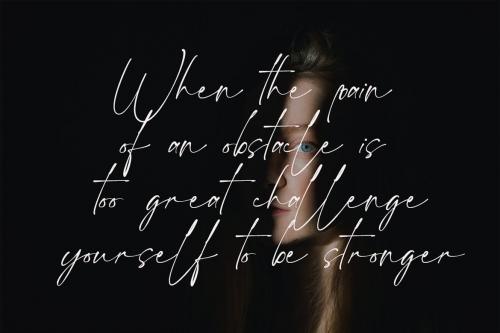 When the pain
of an obstacle is
too great challenge
yourself to be stronger